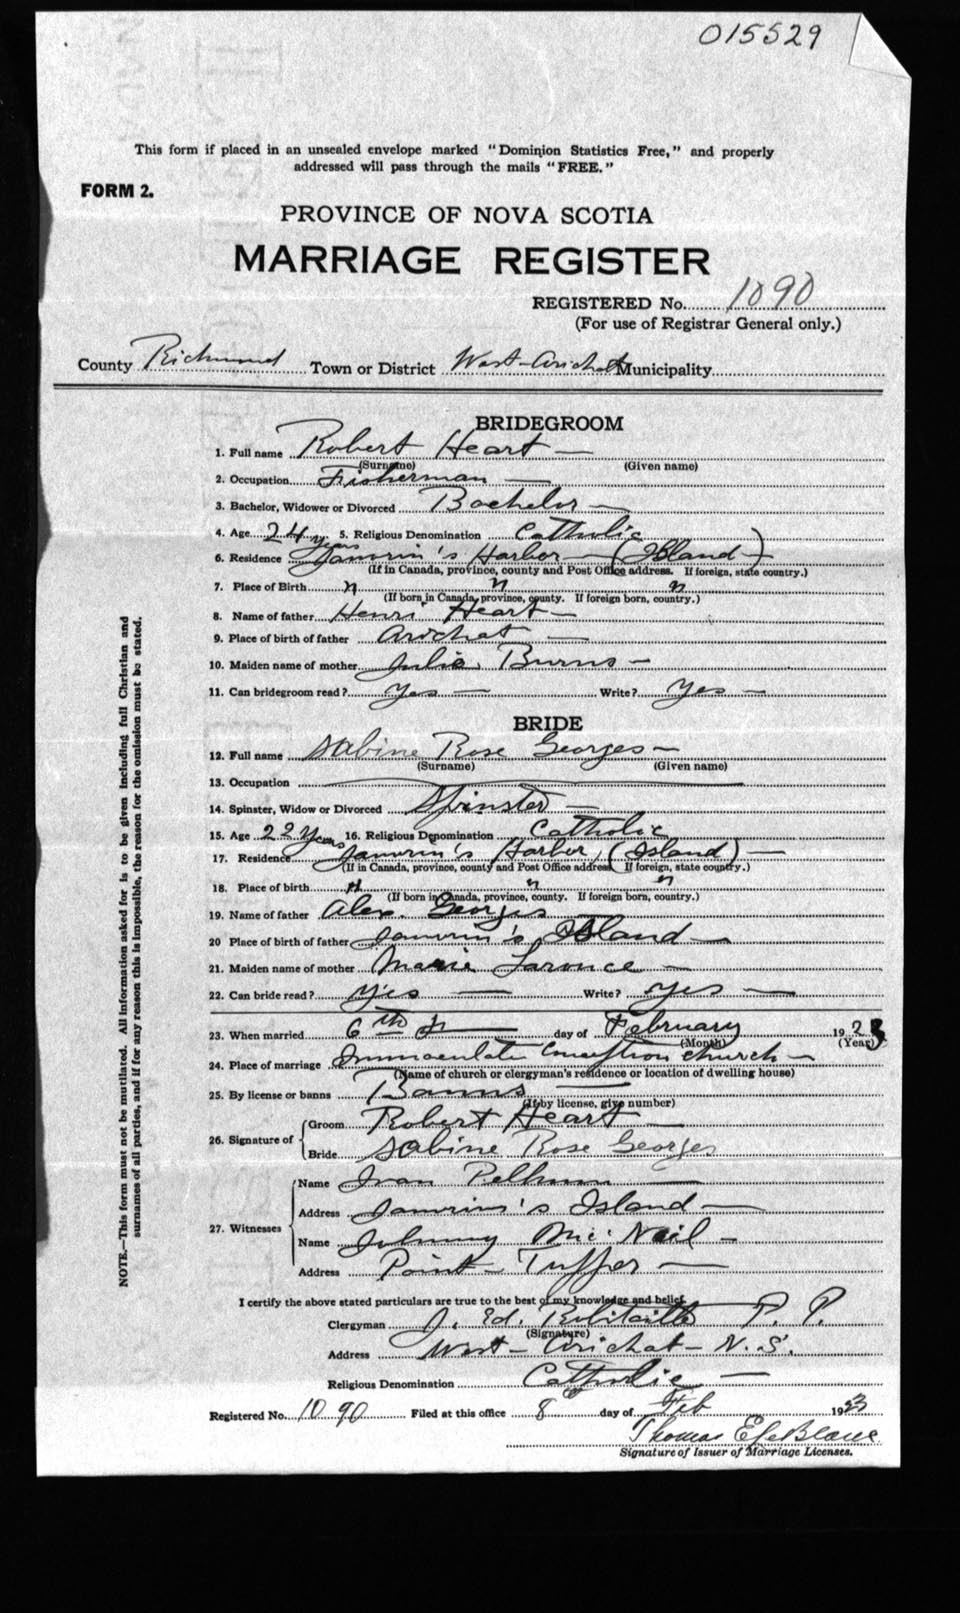 015529
This form if placed in an unsealed envelope marked "Dominion Statistics Free," and properly
addressed will pass through the mails "FREE."
FORM 2.
PROVINCE OF NOVA SCOTIA
MARRIAGE REGISTER
REGISTERED No. 1090
(For use of Registrar General only.)
County Richmond Town or District West-Arichat Municipality
BRIDEGROOM
1. Full name Robert Heart —
(Surname) (Given name)
2. Occupation Fisherman —
3. Bachelor, Widower or Divorced Bachelor —
4. Age 24 years 5. Religious Denomination Catholic
6. Residence Janvrin's Harbor — (Island —)
(If in Canada, province, county and Post Office address. If foreign, state country.)
7. Place of Birth " " "
(If born in Canada, province, county. If foreign born, country.)
8. Name of father Henri Heart —
9. Place of birth of father Arichat —
10. Maiden name of mother Julie Burns —
11. Can bridegroom read? Yes — Write? Yes —
BRIDE
12. Full name Sabine Rose Georges —
(Surname) (Given name)
13. Occupation
14. Spinster, Widow or Divorced Spinster —
15. Age 22 Years 16. Religious Denomination Catholic
17. Residence Janvrin's Harbor, (Island) —
(If in Canada, province, county and Post Office address. If foreign, state country.)
18. Place of birth " " "
(If born in Canada, province, county. If foreign born, country.)
19. Name of father Alex. Georges
20 Place of birth of father Janvrin's Island —
21. Maiden name of mother Marie —
22. Can bride read? yes — Write? yes —
23. When married 6th — day of February 1923
(Month) (Year)
24. Place of marriage Immaculate Conception church —
(Name of church or clergyman's residence or location of dwelling house)
25. By license or banns Banns —
(If by license, give number)
26. Signature of
Groom Robert Heart —
Bride Sabine Rose Georges
27. Witnesses
Name Ivan —
Address Janvrin's Island —
Name Johnny Mc. Neil —
Address Point — Tupper —
I certify the above stated particulars are true to the best of my knowledge and belief.
Clergyman J. Ed. Robitaille P. P.
(Signature)
Address West — Arichat — N. S.
Religious Denomination Catholic —
Registered No. 1090 Filed at this office 8 day of Feb 1923
Thomas E LeBlanc
Signature of Issuer of Marriage Licenses.
NOTE.—This form must not be mutilated. All information asked for is to be given including full Christian and
surnames of all parties, and if for any reason this is impossible, the reason for the omission must be stated.